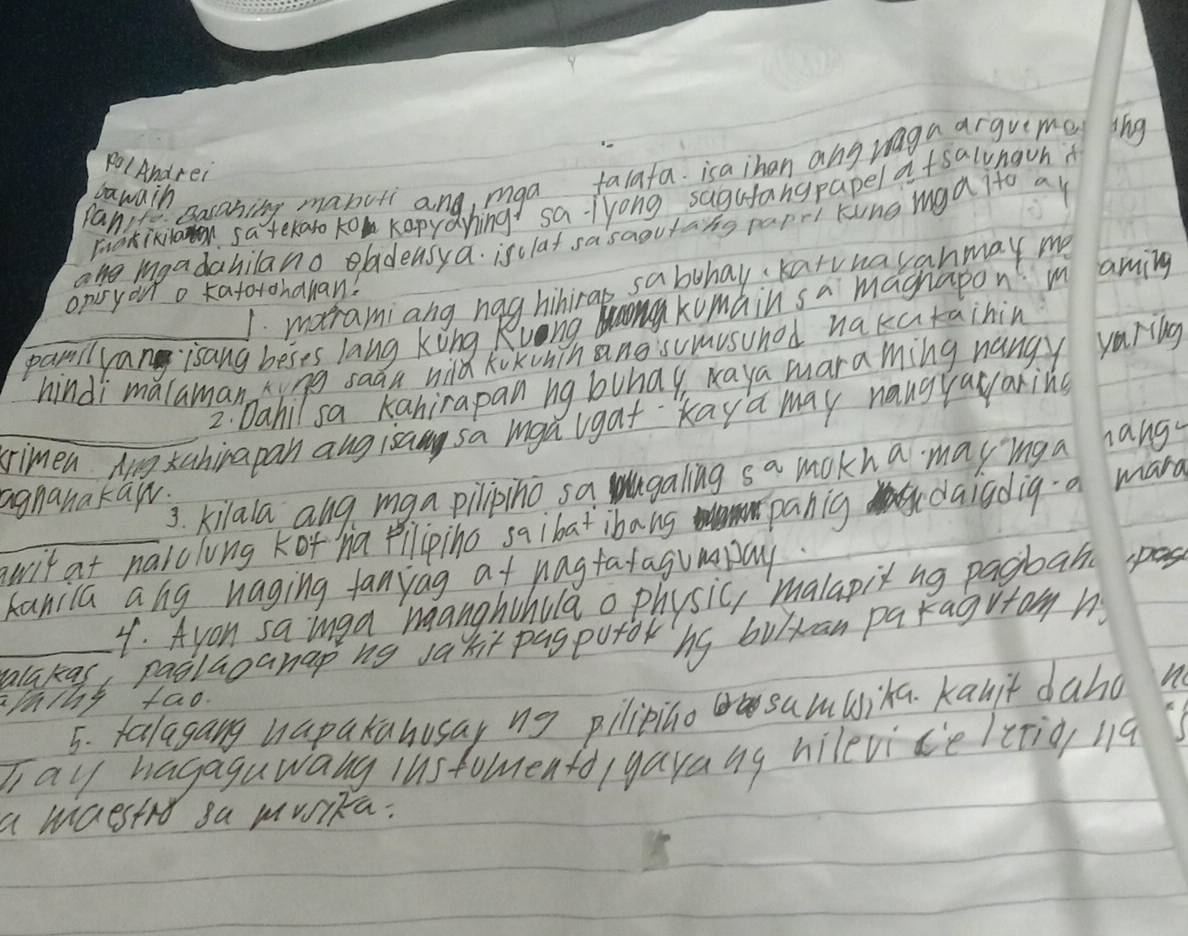 Pol Andrei
Gawain
Panuto. Basahing mabuti ang mga talata. isa ihan ang maga arguemo ing
sa tekato kopyahing sa iyong sagutang papel at salungun it
ang mga dahilan o ebidensya. isulat sa sagutang papel kung mga ito ay
opisyon o katotohanan.
1. marami ang nag hihirap sa buhay. katunayan may mg
pamilyang isang beses lang kung kumain sa maghapon m aming
hindi malaman kung saan nila kukunin ang sumusunod na kakainin
2. Dahil sa kahirapan ng buhay, kaya mara ming nangy yaring
krimen Ang kahirapan ang isang sa mga ugat - kaya may nangyayaring
agnanakaw.
3. kilala ang mga pilipino sa galing sa makha. may mga hang-
awit at nalulung kot na Pilipino sa ibat ibang panig daigdig. a mara
kanila ang naging tanyag at nagtatagumpay.
4. Ayon sa mga manghuhula o physic, malapit ng pagbaha, pag
malakas, paglaganap ng sakit pagputok ng bulkan pa kagutom n
aming tao.
5. talagang napakahusay ng pilipino sa muwika. kanit daho n
ay nagagawang instumento, gaya ng nilevi celerio, na is
a maestro sa musika.